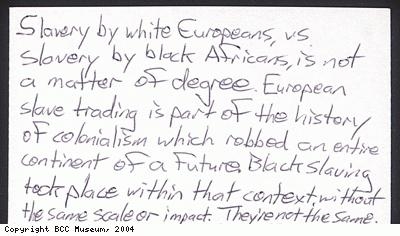 Slavery by white Europeans, vs.
slavery by black Africans, is not
a matter of degree. European
slave trading is part of the history
of colonialism which robbed an entire
continent of a future. Black slaving
took place within that context, without
the same scale or impact. They're not the same.
Copyright BCC Museums, 2004